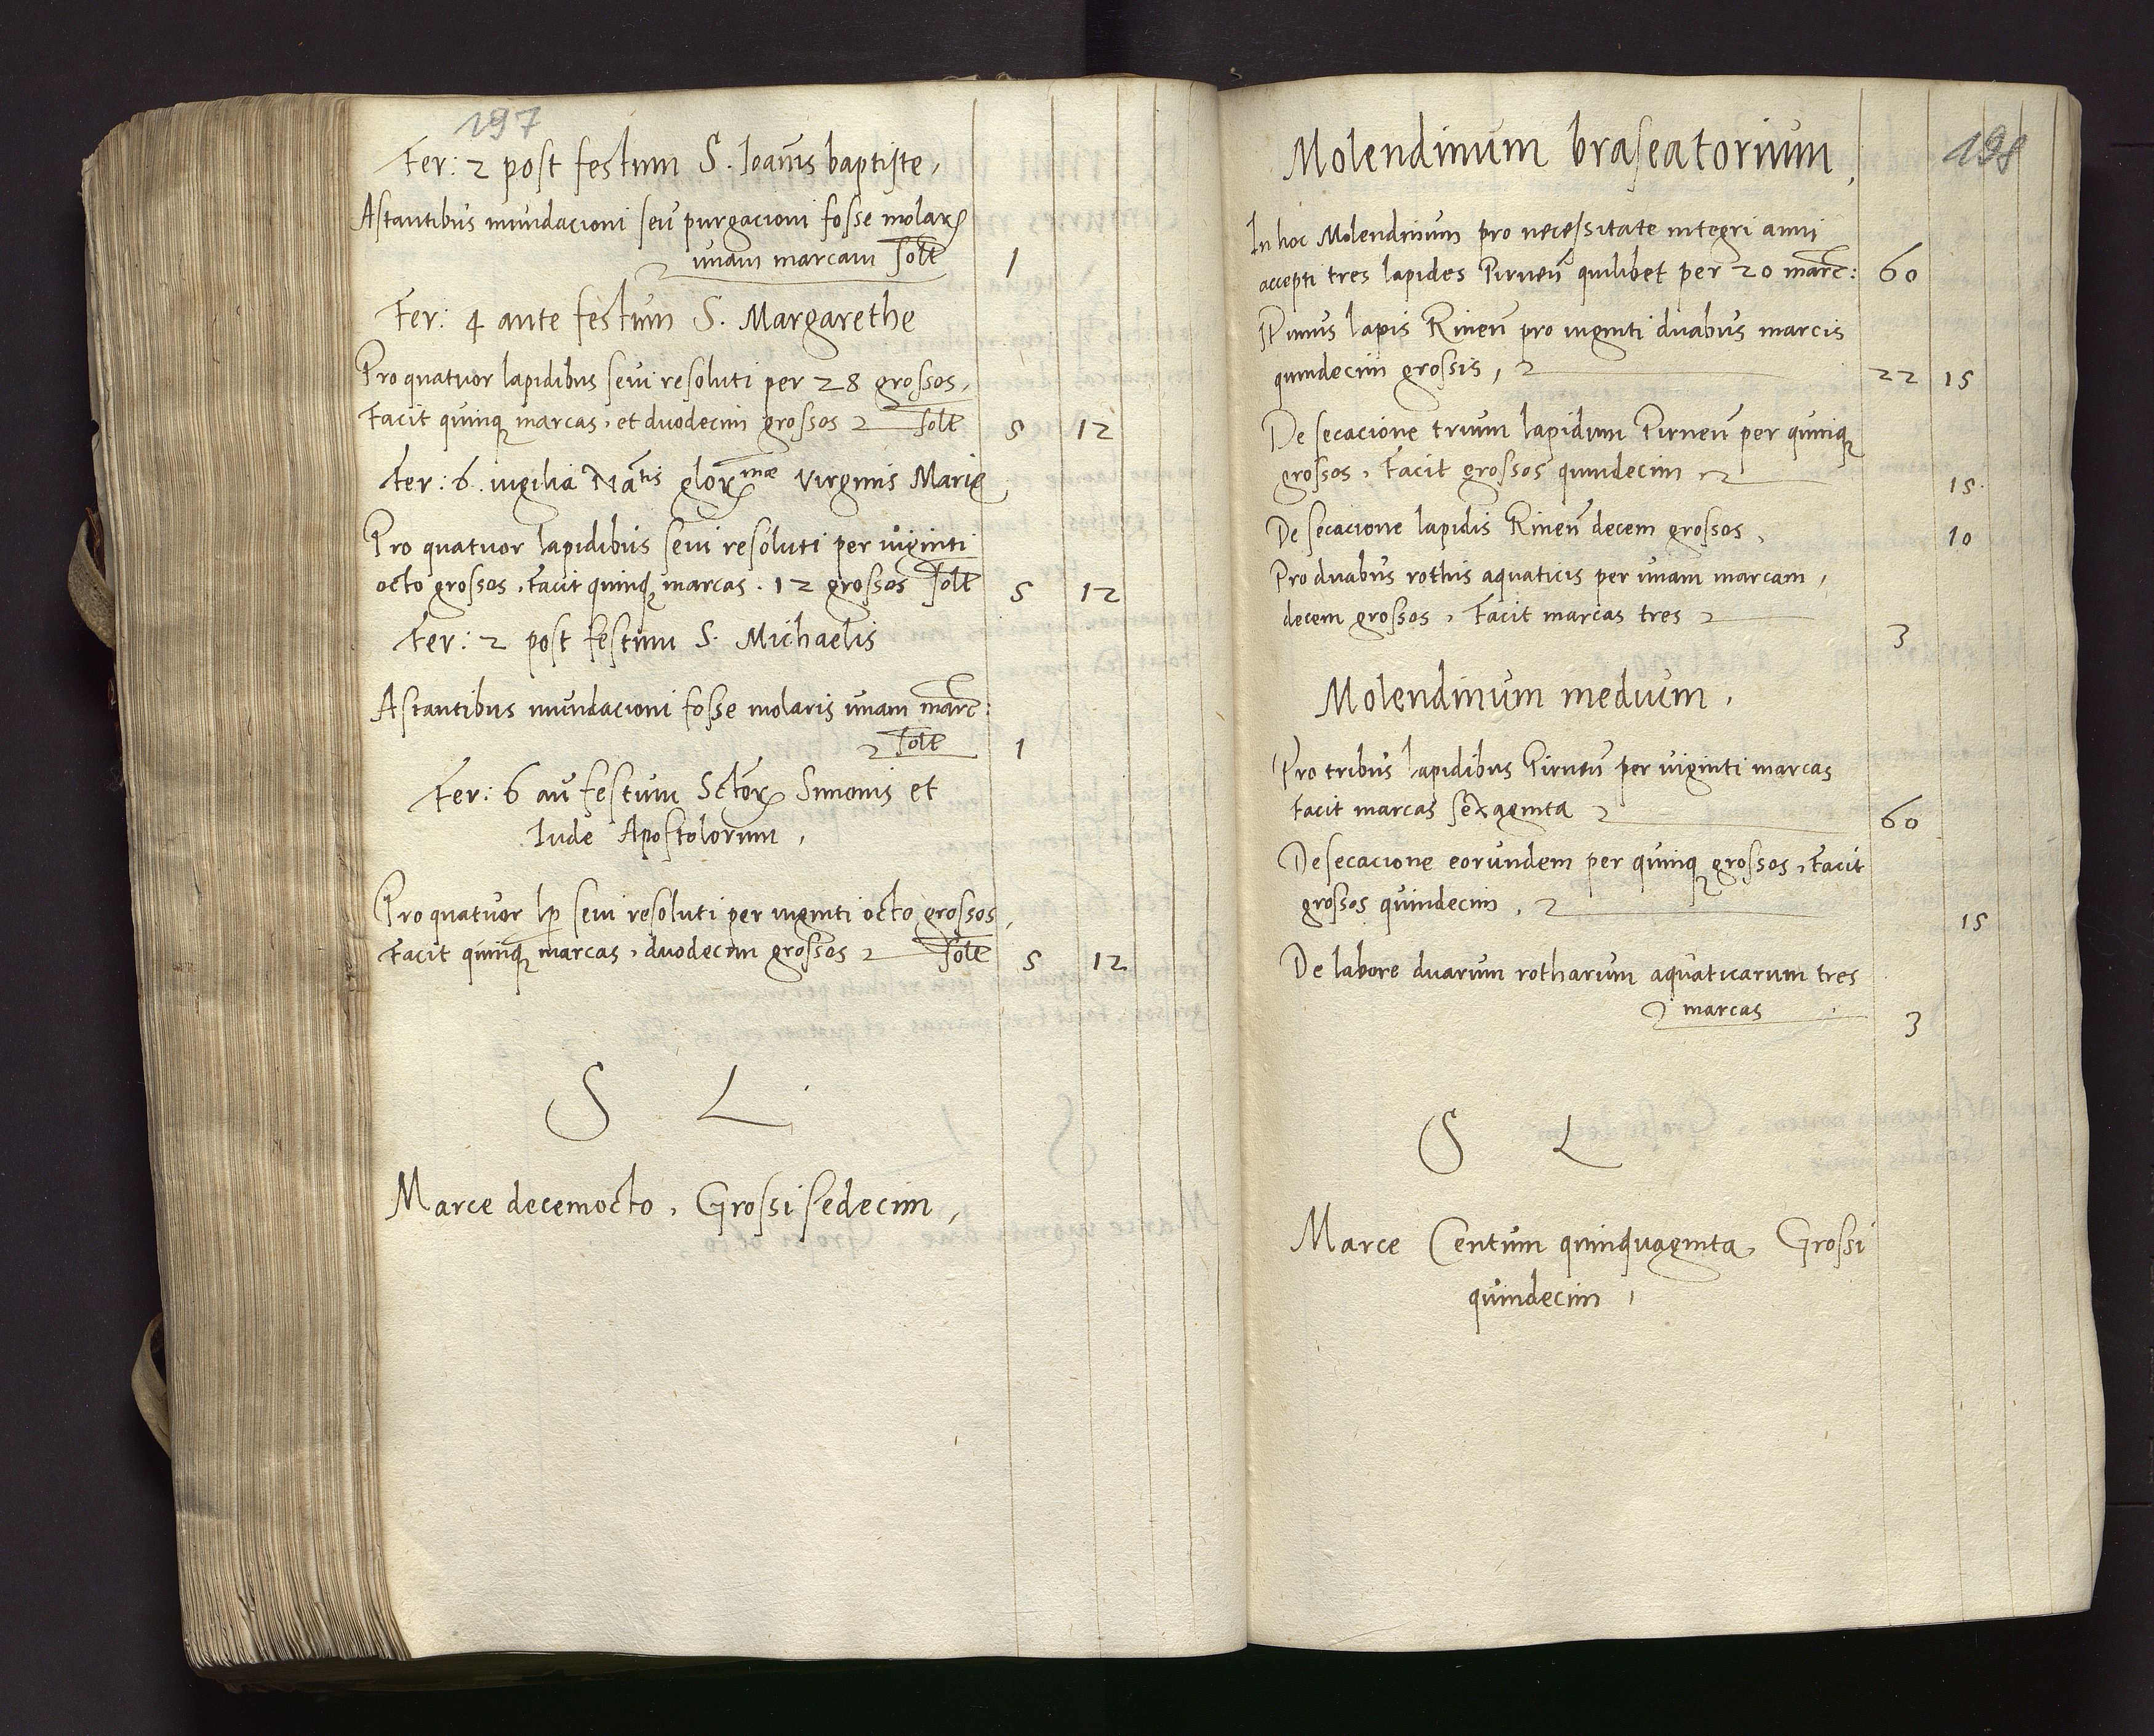 197
Fer: 2 post festum S. Ioañis baptiste,
Astantibus mundacioni seu purgacioni fosse molarꝝ
unam marcam solt 1
Fer: 4 ante festum S. Margarethe
Pro quatuor lapidibus sevi resoluti per 28 grossos,
Facit quinqꝫ marcas, et duodecim grossos solt 5 12
Fer: 6. vigilia Natis glorꝝmæ Virginis Marię
Pro quatuor lapidibus sevi resoluti per viginti
octo grossos, Facit quinqꝫ marcas. 12 grossos solt 5 12
Fer: 2 post festum S. Michaelis
Astantibus mundacioni fosse molaris unam marc:
solt 1
Fer: 6 añ festum Sctorꝝ Simonis et
Iude Apostolorum,
Pro quatuor lp sevi resoluti per viginti octo grossos,
Facit quinqꝫ marcas, duodecim grossos solt 5 12
S L
Marce decemocto, Grossi sedecim,
198
Molendinum braseatorium,
In hoc Molendinum pro necessitate integri anni
accepti tres lapides Pirneñ quilibet per 20 marc: 60
Primus lapis Rineñ pro viginti duabus marcis
quindecim grossis, 22 15
De secacione trium lapidum Pirneñ per quinqꝫ
grossos, Facit grossos quindecim 15
De secacione lapidis Rineñ decem grossos, 10
Pro duabus rothis aquaticis per unam marcam,
decem grossos, Facit marcas tres 3
Molendinum medium,
Pro tribus lapidibus Pirneñ per viginti marcas
Facit marcas sexaginta 60
De secacione eorundem per quinqꝫ grossos, Facit
grossos quindecim, 15
De labore duarum rotharum aquaticarum tres
marcas 3
S L
Marce Centum quinquaginta, Grossi
quindecim,